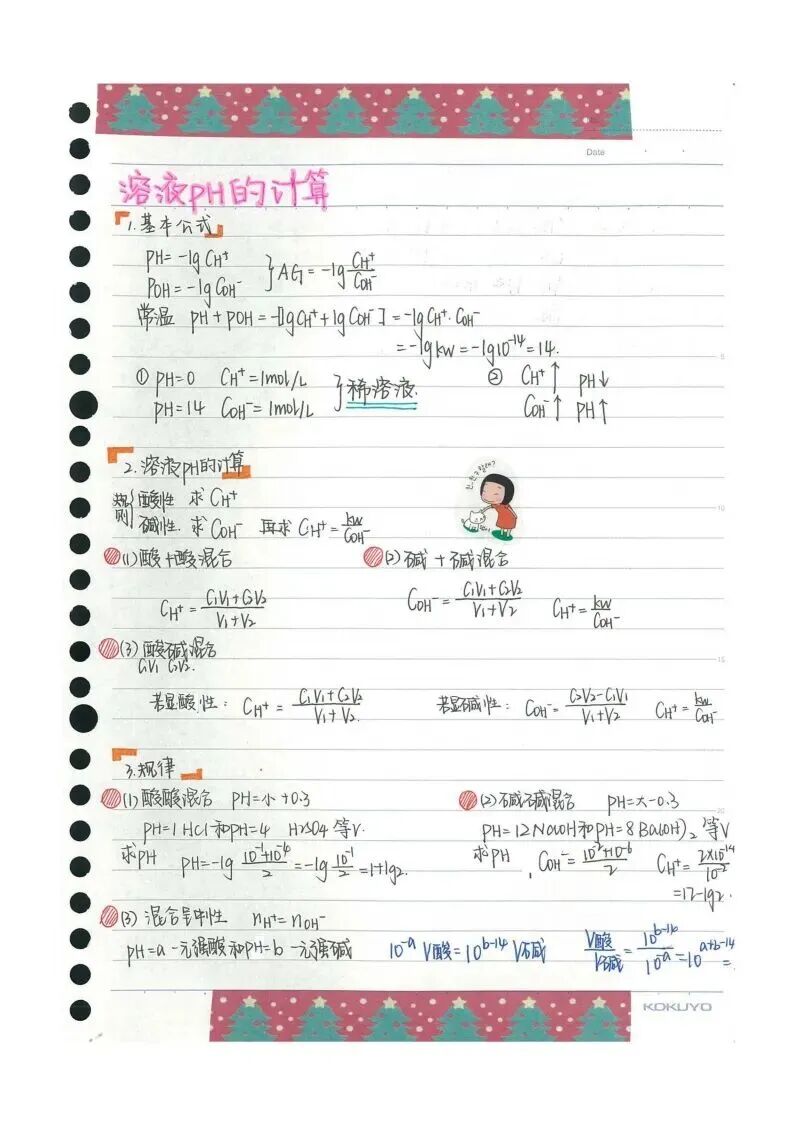 Date
溶液PH的计算
1.基本公式
PH=-lgCH⁺
POH=-lgCOH⁻
}AG=-lg CH⁺/COH⁻
常温 PH+POH=-[lgCH⁺+lgCOH⁻]=-lgCH⁺·COH⁻
=-lgkw=-lg10⁻¹⁴=14.
① PH=0 CH⁺=1mol/L
PH=14 COH⁻=1mol/L
}稀溶液.
② CH⁺↑ PH↓
COH⁻↑ PH↑
2.溶液PH的计算
规则{酸性 求CH⁺
碱性.求COH⁻ 再求CH⁺=kw/COH⁻
(1)酸+酸混合
CH⁺=C1V1+C2V2/V1+V2
(2)碱+碱混合
COH⁻=C1V1+C2V2/V1+V2 CH⁺=kw/COH⁻
(3)酸碱混合
C1V1 C2V2.
若显酸性: CH⁺=C1V1+C2V2/V1+V2.
若显碱性: COH⁻=C2V2-C1V1/V1+V2 CH⁺=kw/COH⁻
3.规律
(1)酸酸混合 PH=小+0.3
PH=1 HCl和PH=4 H2SO4 等V.
求PH PH=-lg 10⁻¹+10⁻⁴/2=-lg 10⁻¹/2=1+lg2.
(2)碱碱混合 PH=大-0.3
PH=12NaOH和PH=8 Ba(OH)2 等V
求PH. COH⁻=10⁻²+10⁻⁶/2 CH⁺=2×10⁻¹⁴/10⁻²
=12-lg2.
(3)混合呈中性 nH⁺=nOH⁻
PH=a一元强酸和PH=b一元强碱 10⁻ᵃ V酸=10ᵇ⁻¹⁴ V碱 V酸/V碱=10ᵇ⁻¹⁴/10⁻ᵃ=10ᵃ⁺ᵇ⁻¹⁴=
KOKUYO